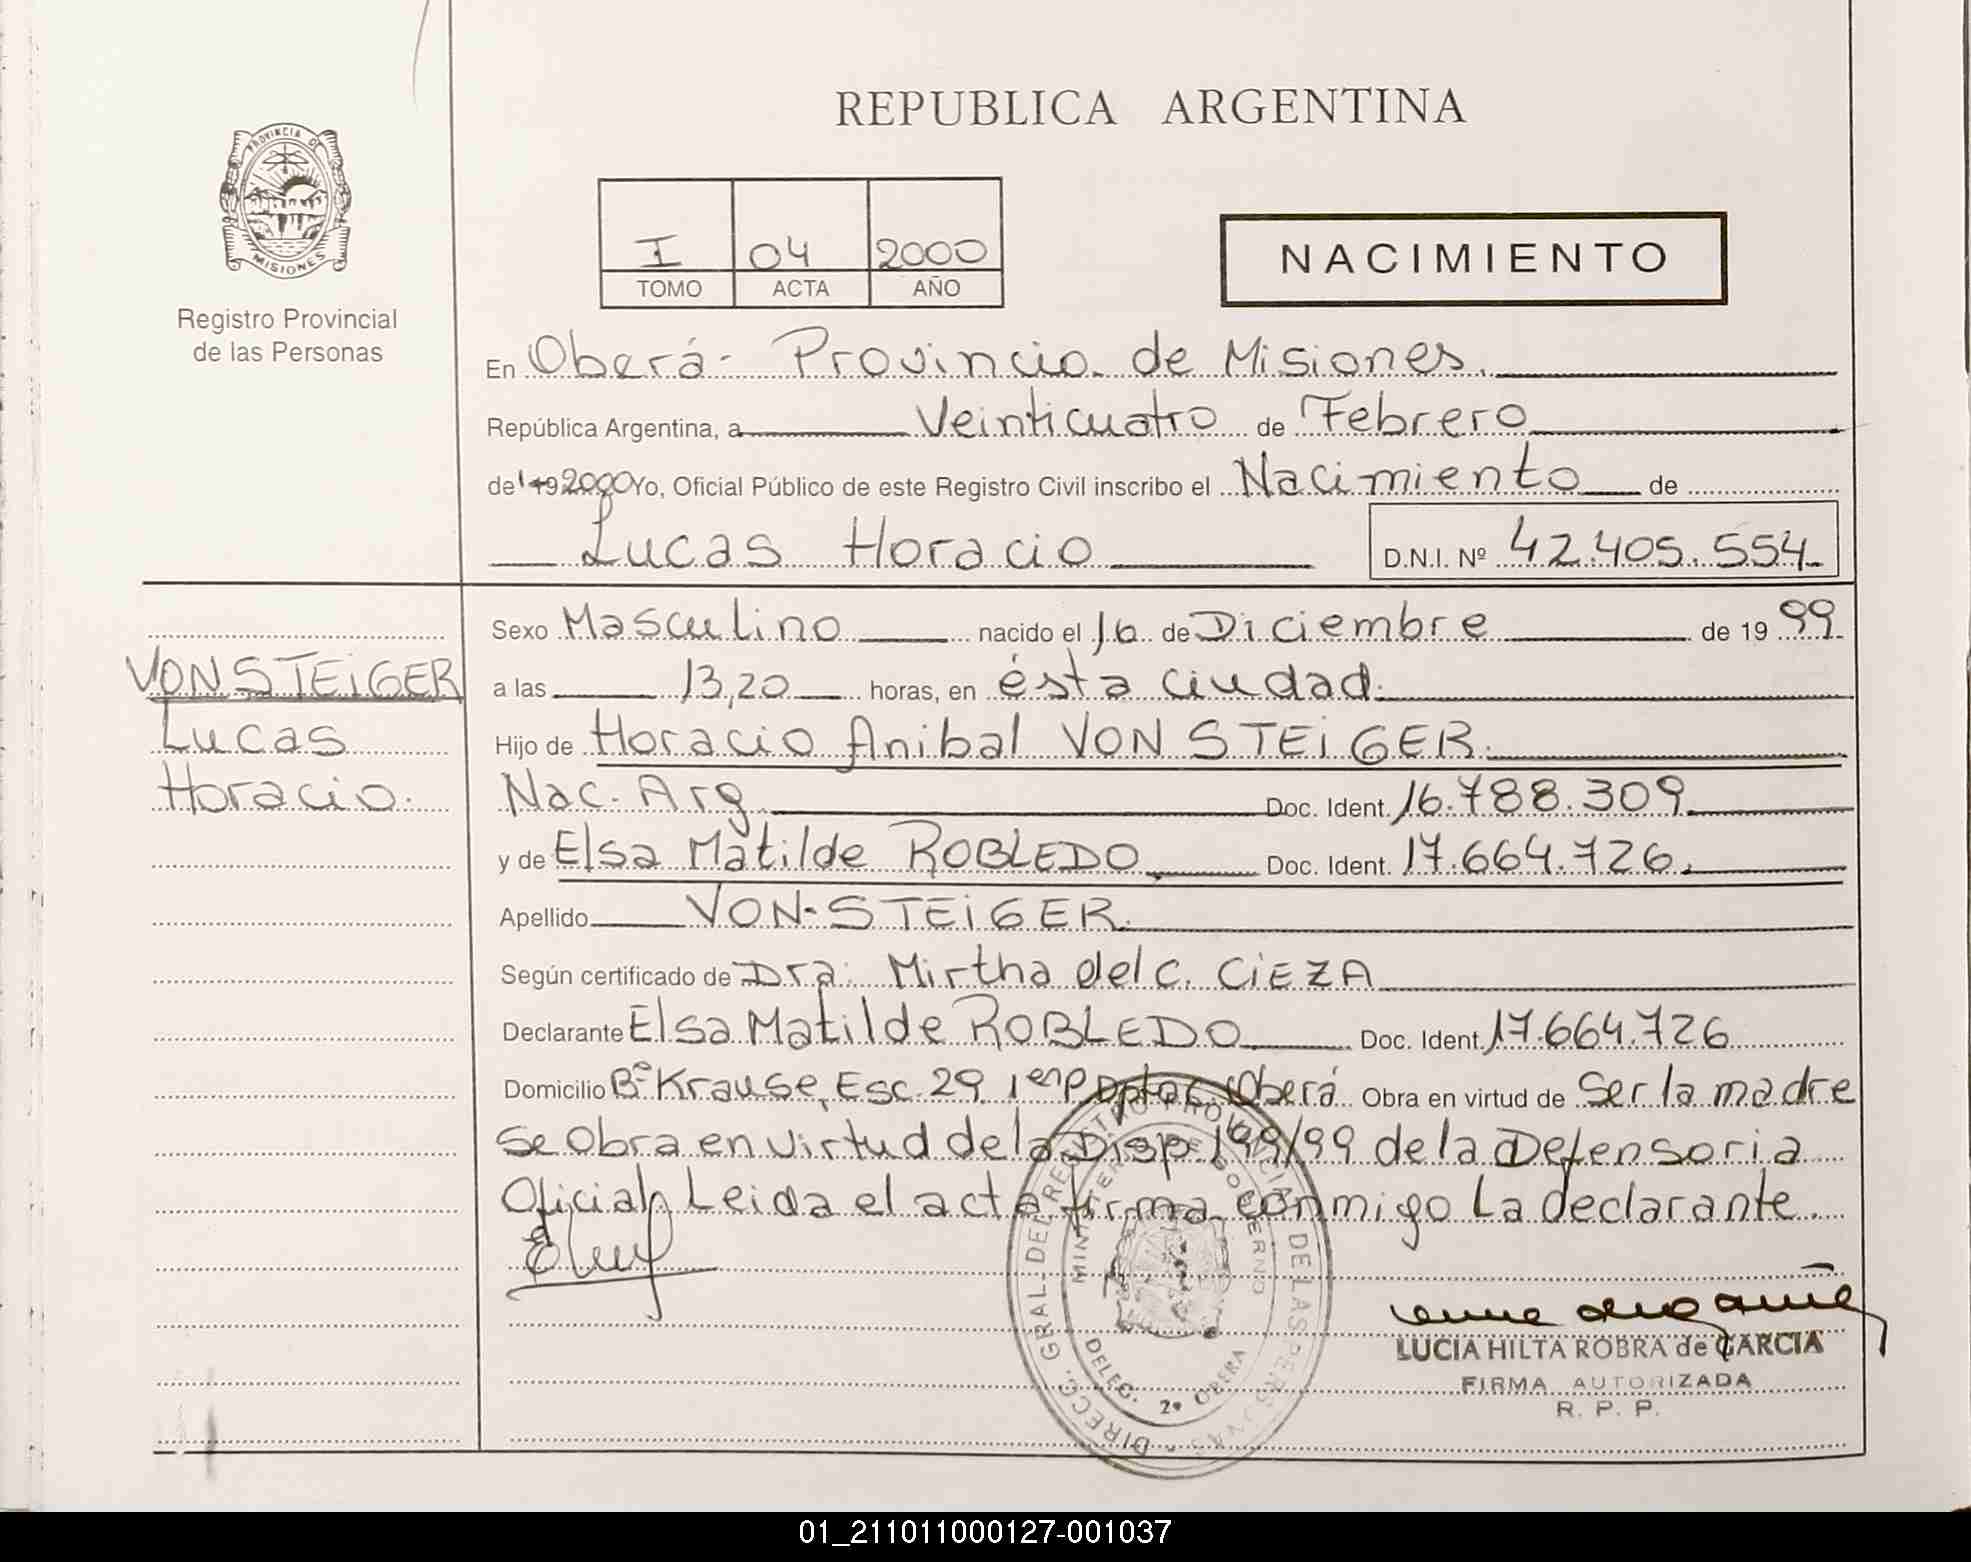 REPUBLICA ARGENTINA
PROVINCIA DE
MISIONES
Registro Provincial
de las Personas
I 04 2000
TOMO ACTA AÑO
NACIMIENTO
En Oberá- Provincia de Misiones.
República Argentina, a Veinticuatro de Febrero
de 19 2000 Yo, Oficial Público de este Registro Civil inscribo el Nacimiento de
Lucas Horacio D.N.I. Nº 42.405.554
VON STEiGER
Lucas
Horacio.
Sexo Masculino nacido el 16 de Diciembre de 19 99
a las 13,20 horas, en ésta ciudad.
Hijo de Horacio Anibal VON STEiGER.
Nac. Arg. Doc. Ident. 16.788.309
y de Elsa Matilde ROBLEDO Doc. Ident. 17.664.726.
Apellido VON-STEiGER.
Según certificado de Dra: Mirtha del C. CiEZA
Declarante Elsa Matilde ROBLEDO Doc. Ident. 17.664.726
Domicilio Bº Krause, Esc. 29, 1er P. Dptac. Oberá Obra en virtud de Ser la madre
Se Obra en virtud de la Disp. 199/99 de la Defensoria
Oficial, Leida el acta firma conmigo La declarante.
DIRECC. GRAL. DEL REGISTRO PROVINCIAL DE LAS PERSONAS
MINISTERIO DE GOBIERNO
DELEG. 2º OBERA
LUCIA HILTA ROBRA de GARCIA
FIRMA AUTORIZADA
R. P. P.
01_211011000127-001037